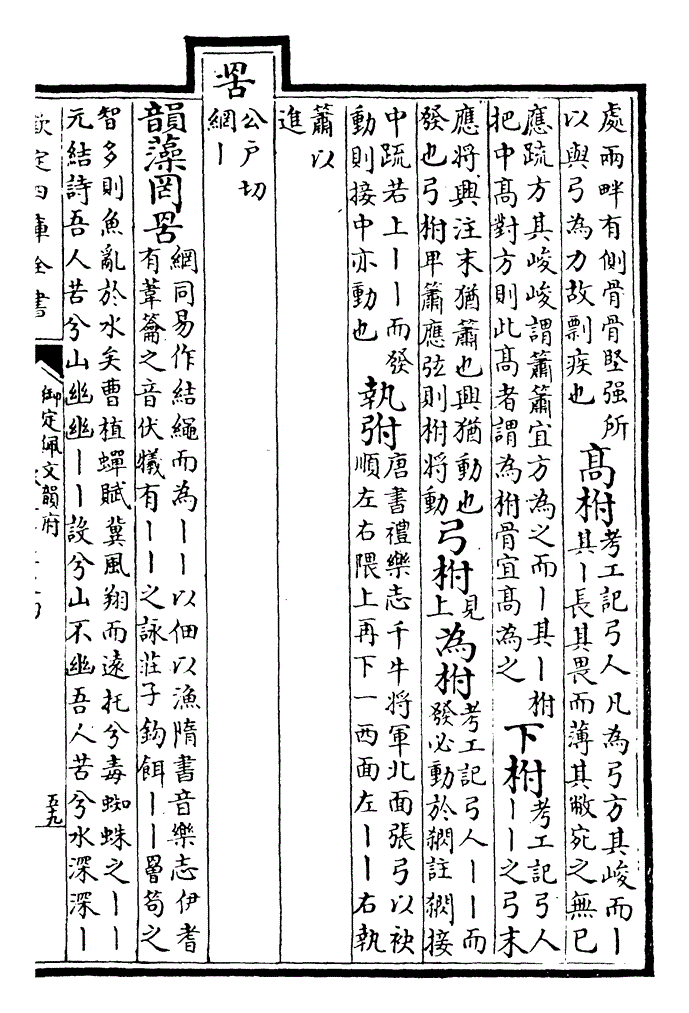 處兩畔有側骨骨堅强所
以與弓為力故剽疾也
髙柎
考工記弓人凡為弓方其峻而丨
其丨長其畏而薄其敝宛之無已
應疏方其峻峻謂簫簫宜方為之而丨其丨柎
把中髙對方則此髙者謂為柎骨宜髙為之
下柎
考工記弓人
丨丨之弓末
應将興注末猶簫也興猶動也
發也弓柎卑簫應弦則柎将動
弓柎
見
上
為柎
考工記弓人丨丨而
發必動於閷註閷接
中疏若上丨丨而發
動則接中亦動也
執弣
唐書禮樂志千牛将軍北面張弓以袂
順左右隈上再下一西面左丨丨右執
簫以
進
罟
公戶切
網丨
韻藻罔罟
網同易作結繩而為丨丨以佃以漁隋書音樂志伊耆
有葦籥之音伏犧有丨丨之詠莊子鈎餌丨丨罾笱之
智多則魚亂於水矣曹植蟬賦冀風翔而遠托兮毒蜘蛛之丨丨
元結詩吾人苦兮山幽幽丨丨設兮山不幽吾人苦兮水深深丨
欽定四庫全書
御定佩文韻府
五九